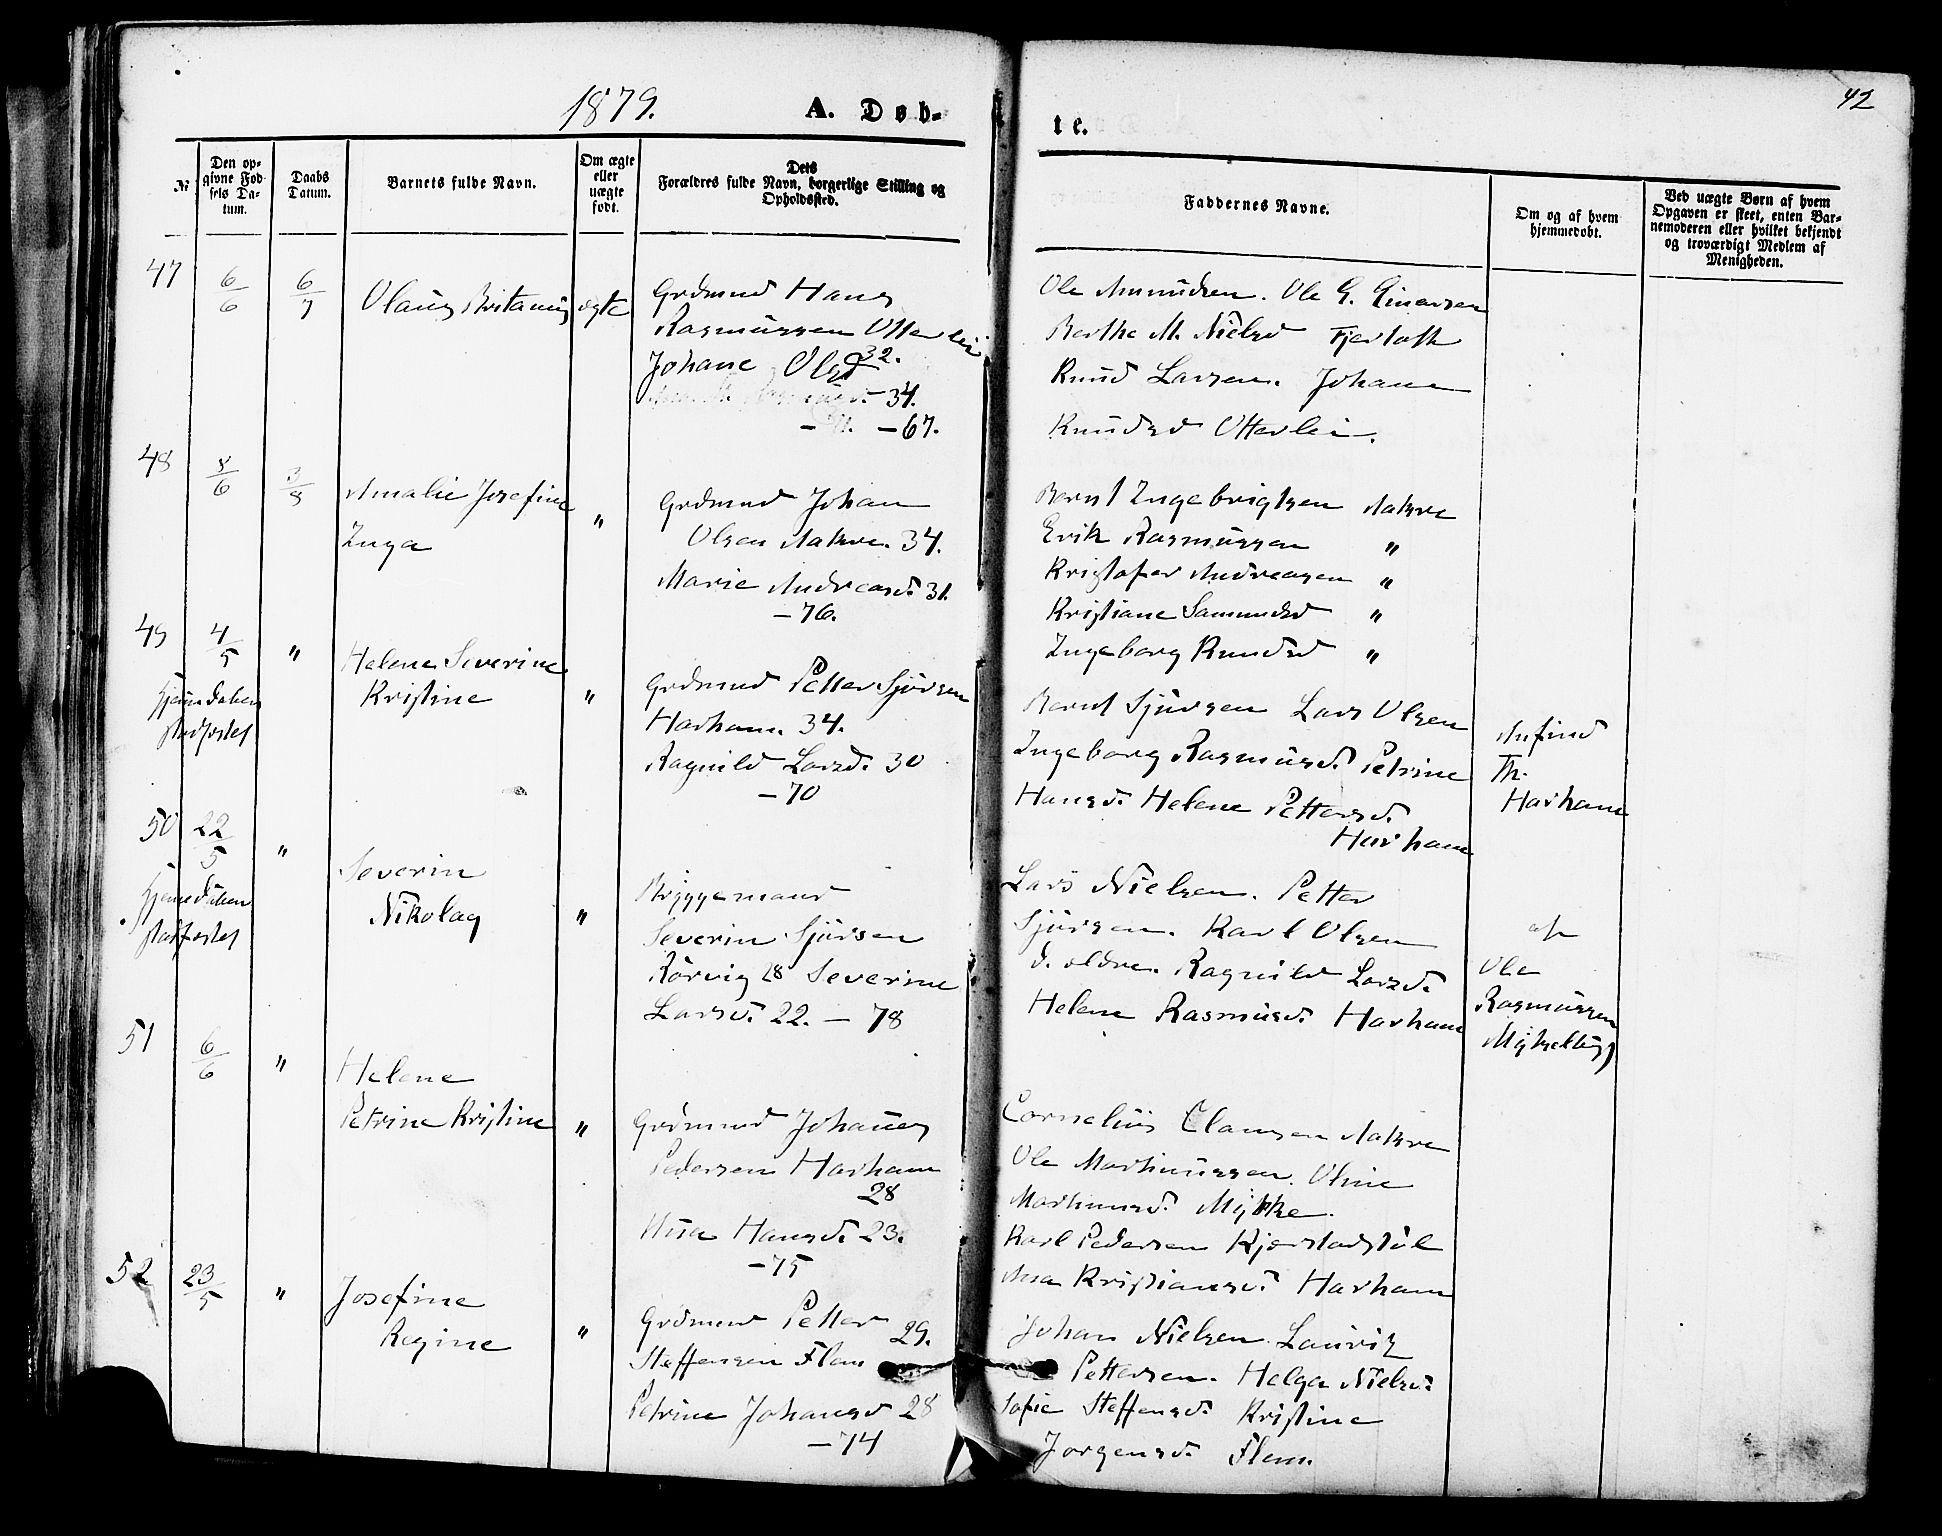 1879.
A. Døb-
te.
42
№
Den op-
givne Fød-
sels Da-
tum.
Daabs
Datum.
Barnets fulde Navn.
Om ægte
eller
uægte
født.
Dets
Forældres fulde Navn, borgerlige Stilling og
Opholdssted.
Faddernes Navne.
Om og af hvem
hjemmedøbt.
Ved uægte Børn af hvem
Opgaven er skeet, enten Bar-
nemoderen eller hvilket bekjendt
og troværdigt Medlem af
Menigheden.
47
6/6
6/7
Olaus
ægte
Grdmnd Hans
Rasmussen Otterlei
32.
Johane Olsd
34.
-67.
Ole Amundsen. Ole G. Einarsen
Berthe M. Nielsd Fjertoft
Knud Larsen. Johane
Knudsd Otterlei.
48
8/6
3/8
Amalie Josefine
Inga
"
Grdmnd Johan
Olsen Aakre. 34.
Marie Andreasd. 31.
-76.
Bernt Ingebrigtsen Aakre
Erik Rasmussen "
Kristofer Andreasen "
Kristiane Samundsd "
Ingeborg Knudsd "
49
4/5
"
Hjemdaaben
stadfæstet
Helene Severine
Kristine
"
Grdmnd Petter Sjursen
Harham. 34.
Ragnild Larsd. 30
-70
Bernt Sjursen Lars Olsen
Ingeborg Rasmusd. Petrine
Hansd. Helene Pettersd.
Harham
Anfind
Th.
Harham
50
22/5
"
Hjemdaaben
stadfæstet
Severin
Nikolay
"
Byggemand
Severin Sjursen
Rørvig 28 Severine
Larsd. 22. - 78
Lars Nielsen. Petter
Sjursen. Karl Olsen
d. ældre. Ragnild Larsd.
Helene Rasmusd. Harham
af
Ole
Rasmussen
Myklebust
51
6/6
"
Helene
Petrine Kristine
"
Grdmnd Johannes
Pedersen Harham
28
Hansd. 23.
-75
Cornelius Clausen Aakre
Ole Martinussen. Oline
Martinusd. Mykke.
Karl Pedersen Kjerstadstøl
Ana Kristiansd. Harham
52
23/5
"
Josefine
Regine
"
Grdmnd Petter
29.
Steffensen Flem
Petrine Johansd 28
-74
Johan Nielsen. Lauritz
Pettersen. Helga Nielsd.
Sofie Steffensd. Kristine
Jørgensd. Flem.